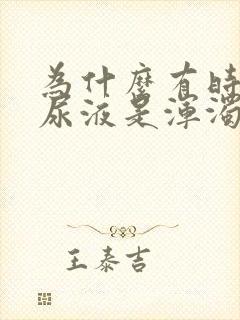 為什麼有時
尿液是渾濁
王泰吉